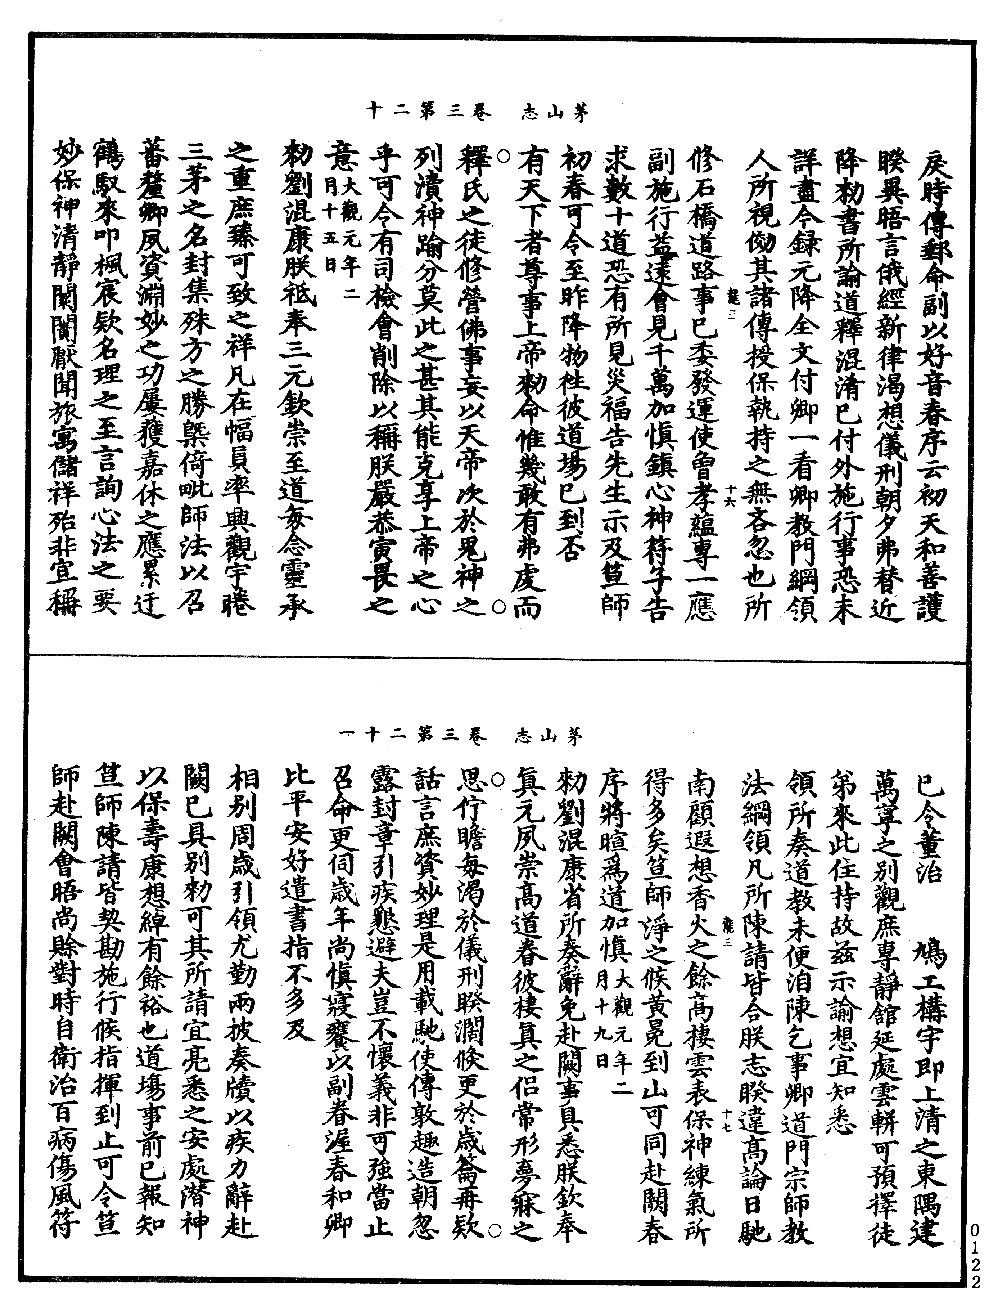 茅山志　卷三第二十
戾時傳郵命副以好音春序云初天和善護
睽異晤言俄經新律渴想儀刑朝夕弗替近
降勑書所諭道釋混淆已付外施行事恐未
詳盡今録元降全文付卿一看卿教門綱領
人所視傚其諸傳授保執持之無吝忽也所
修石橋道路事已委發運使曾孝蘊專一應
副施行益遠會見千萬加慎鎮心神符子告
求數十道恐有所見災福告先生示及笪師
初春可令至昨降物牲彼道場已到否
有天下者尊事上帝勑命惟幾敢有弗虔而
釋氏之徒修營佛事妄以天帝次於鬼神之
列瀆神踰分莫此之甚其能克享上帝之心
乎可令有司檢會削除以稱朕嚴恭寅畏之
意大觀元年二月十五日
勑劉混康朕祗奉三元欽崇至道每念靈承
之重庶臻可致之祥凡在幅員率興觀宇睠
三茅之名封集殊方之勝槩倚毗師法以召
蕃釐卿夙資淵妙之功屢獲嘉休之應累迂
鶴馭來叩楓宸欵名理之至言詢心法之要
妙保神清靜闤闠厭聞旅寓儲祥殆非宣稱
龍三
十六
茅山志　卷三第二十一
已令董治　鳩工構宇即上清之東隅建
萬寧之别觀庶專靜館延處雲軿可預擇徒
弟來此住持故兹示諭想宜知悉
領所奏道教未便洎陳乞事卿道門宗師教
法綱領凡所陳請皆合朕志睽違高論日馳
南顧遐想香火之餘高棲雲表保神練氣所
得多矣笪師淨之候黄冕到山可同赴闕春
序將暄爲道加慎大觀元年二月十九日
勑劉混康省所奏辭免赴闕事具悉朕欽奉
真元夙崇高道眷彼棲真之侶常形夢寐之
思佇瞻每渴於儀刑睽濶候更於歳籥再欵
話言庶資妙理是用載馳使傳敦趣造朝忽
露封章引疾懇避夫豈不懷義非可強當止
召命更伺歳年尚慎寢饔以副眷渥春和卿
比平安好遣書指不多及
相别周歳引領尤勤兩披奏牘以疾力辭赴
闕已具别勑可其所請宜亮悉之安處潛神
以保壽康想綽有餘裕也道塲事前已報知
笪師陳請皆契勘施行候指揮到止可令笪
師赴闕會晤尚賒對時自衛治百病傷風符
龍三
十七
0122